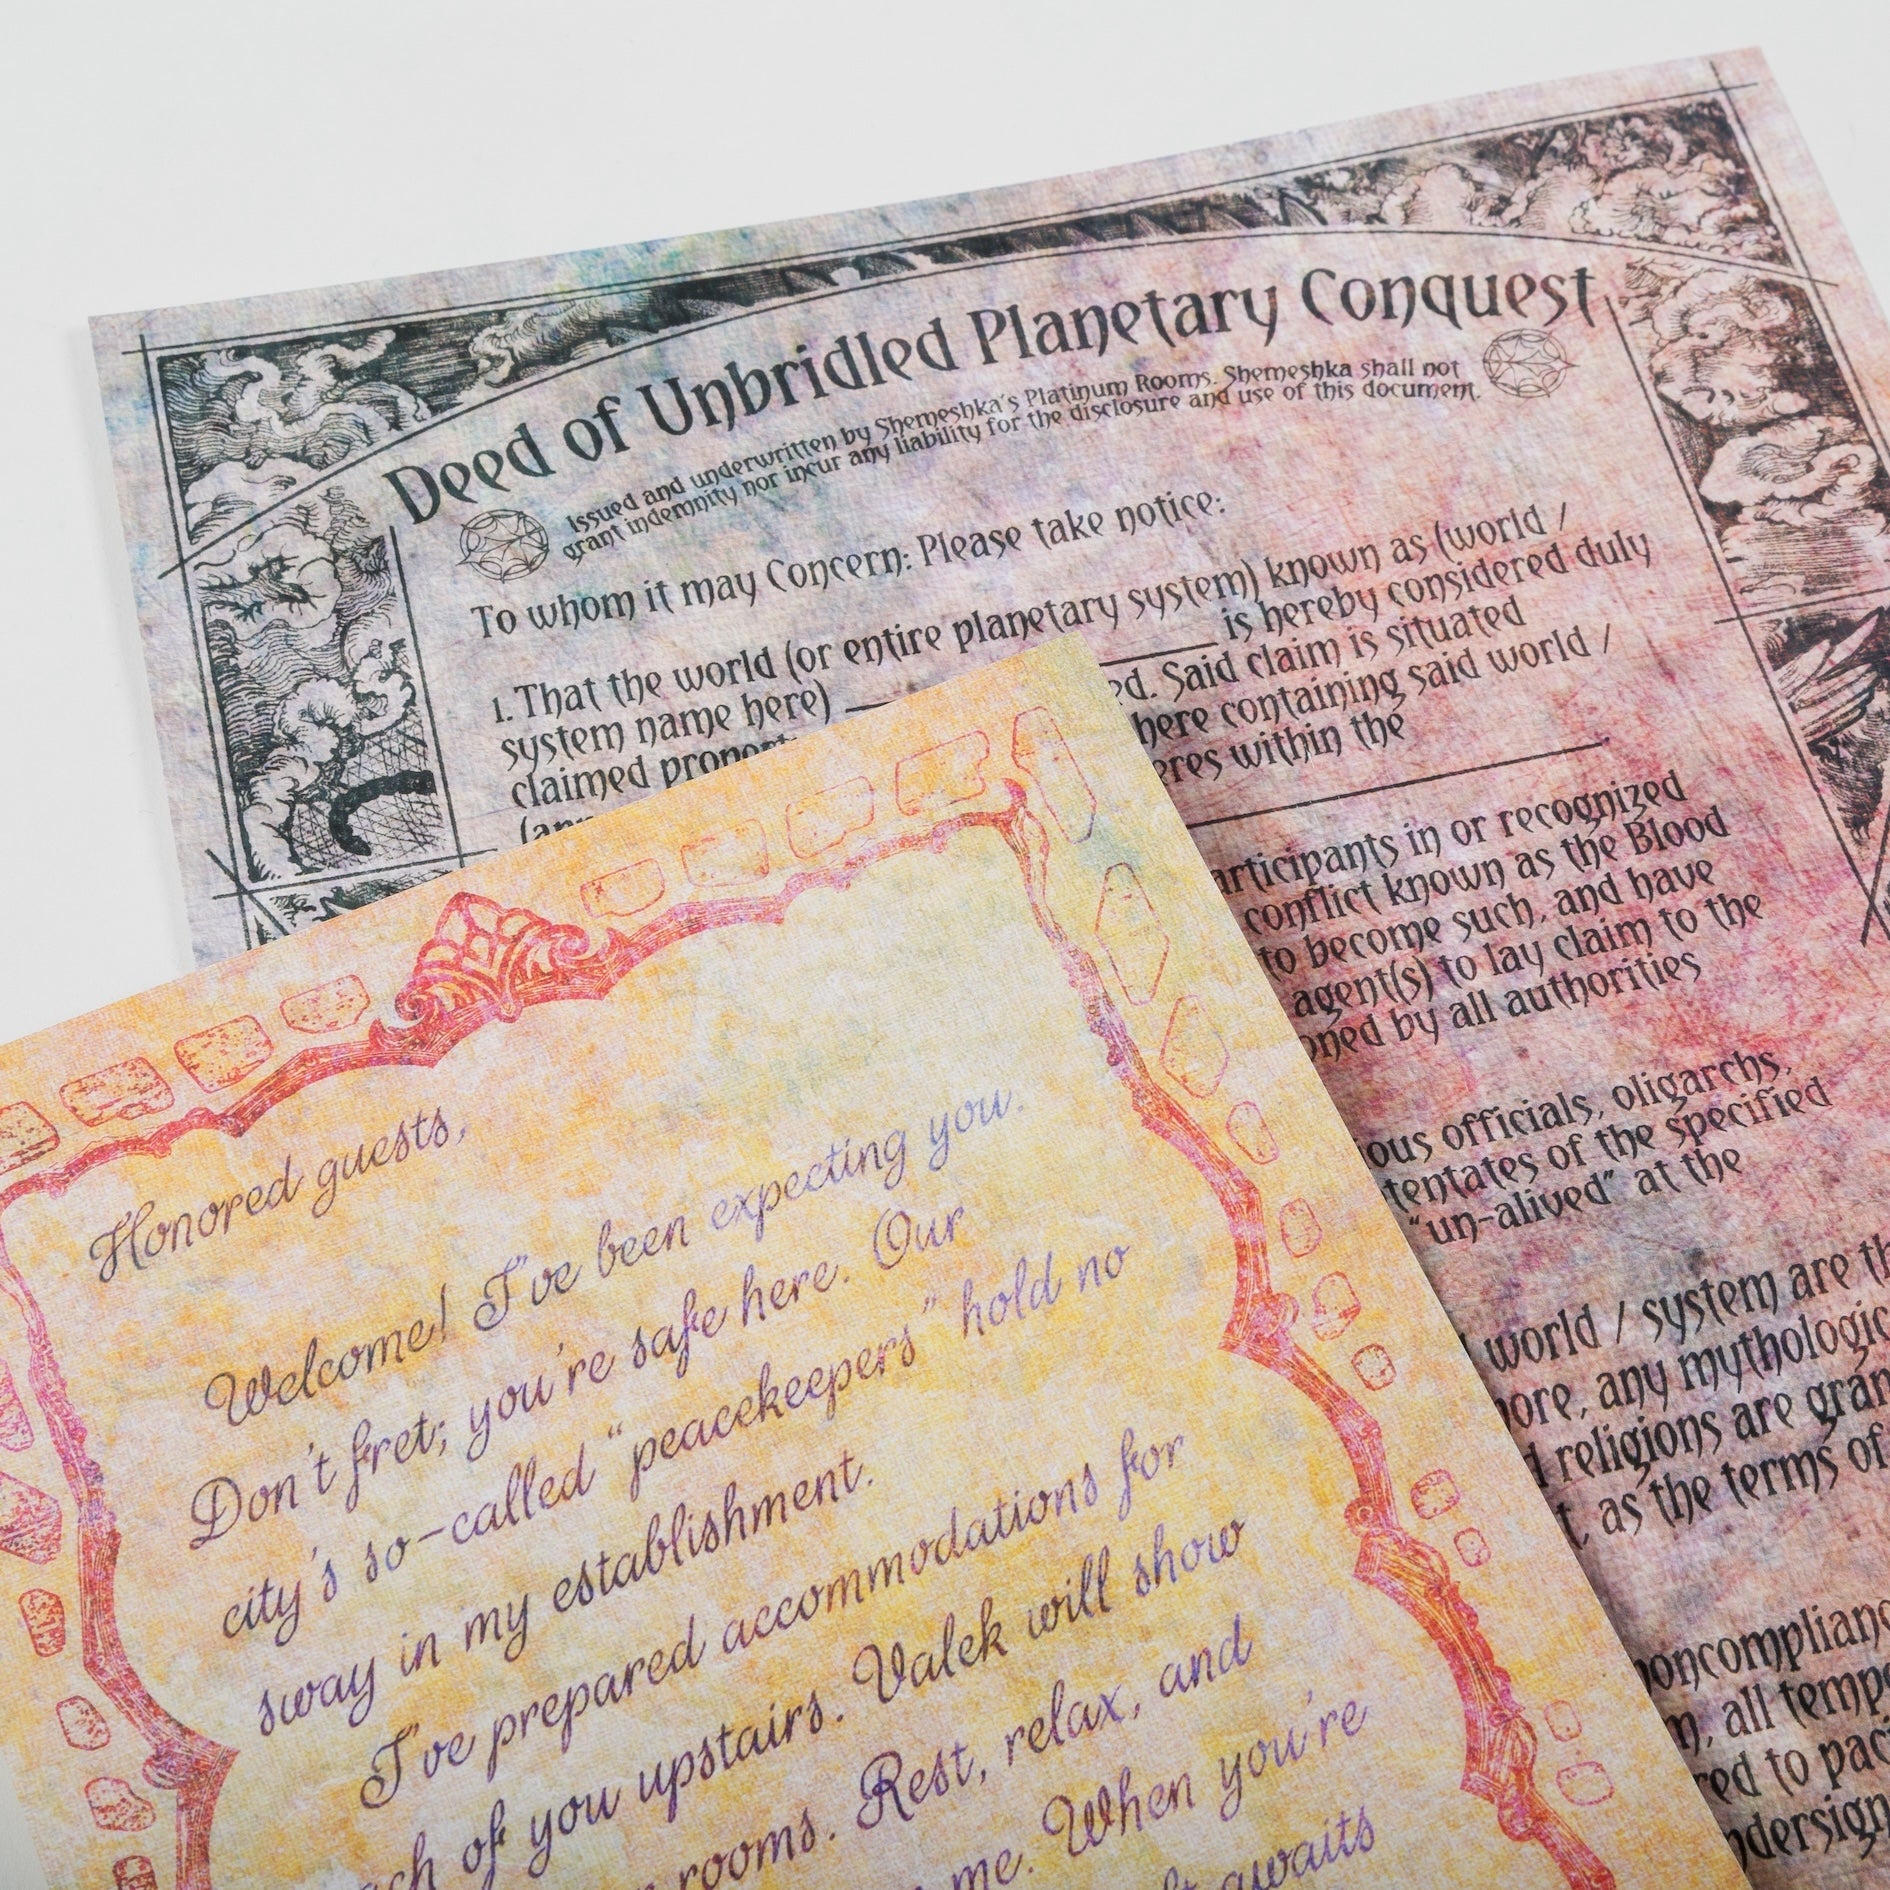 Deed of Unbridled Planetary Conquest
Issued and underwritten by Shemeshka's Platinum Rooms. Shemeshka shall not
grant indemnity nor incur any liability for the disclosure and use of this document.
To whom it may Concern: Please take notice:
1. That the world (or entire planetary system) known as (world /
system name here) is hereby considered duly
claimed Said claim is situated
containing said world /
within the
in or recognized
conflict known as the Blood
to become such, and have
agent(s) to lay claim to the
by all authorities
officials, oligarchs,
of the specified
"un-alived" at the
world / system are
any mythologic
religions are
as the terms of
all
to
Honored guests,
Welcome! I've been expecting you.
Don't fret; you're safe here. Our
city's so-called "peacekeepers" hold no
sway in my establishment.
I've prepared accommodations for
of you upstairs. Valek will show
rooms. Rest, relax, and
me. When you're
awaits